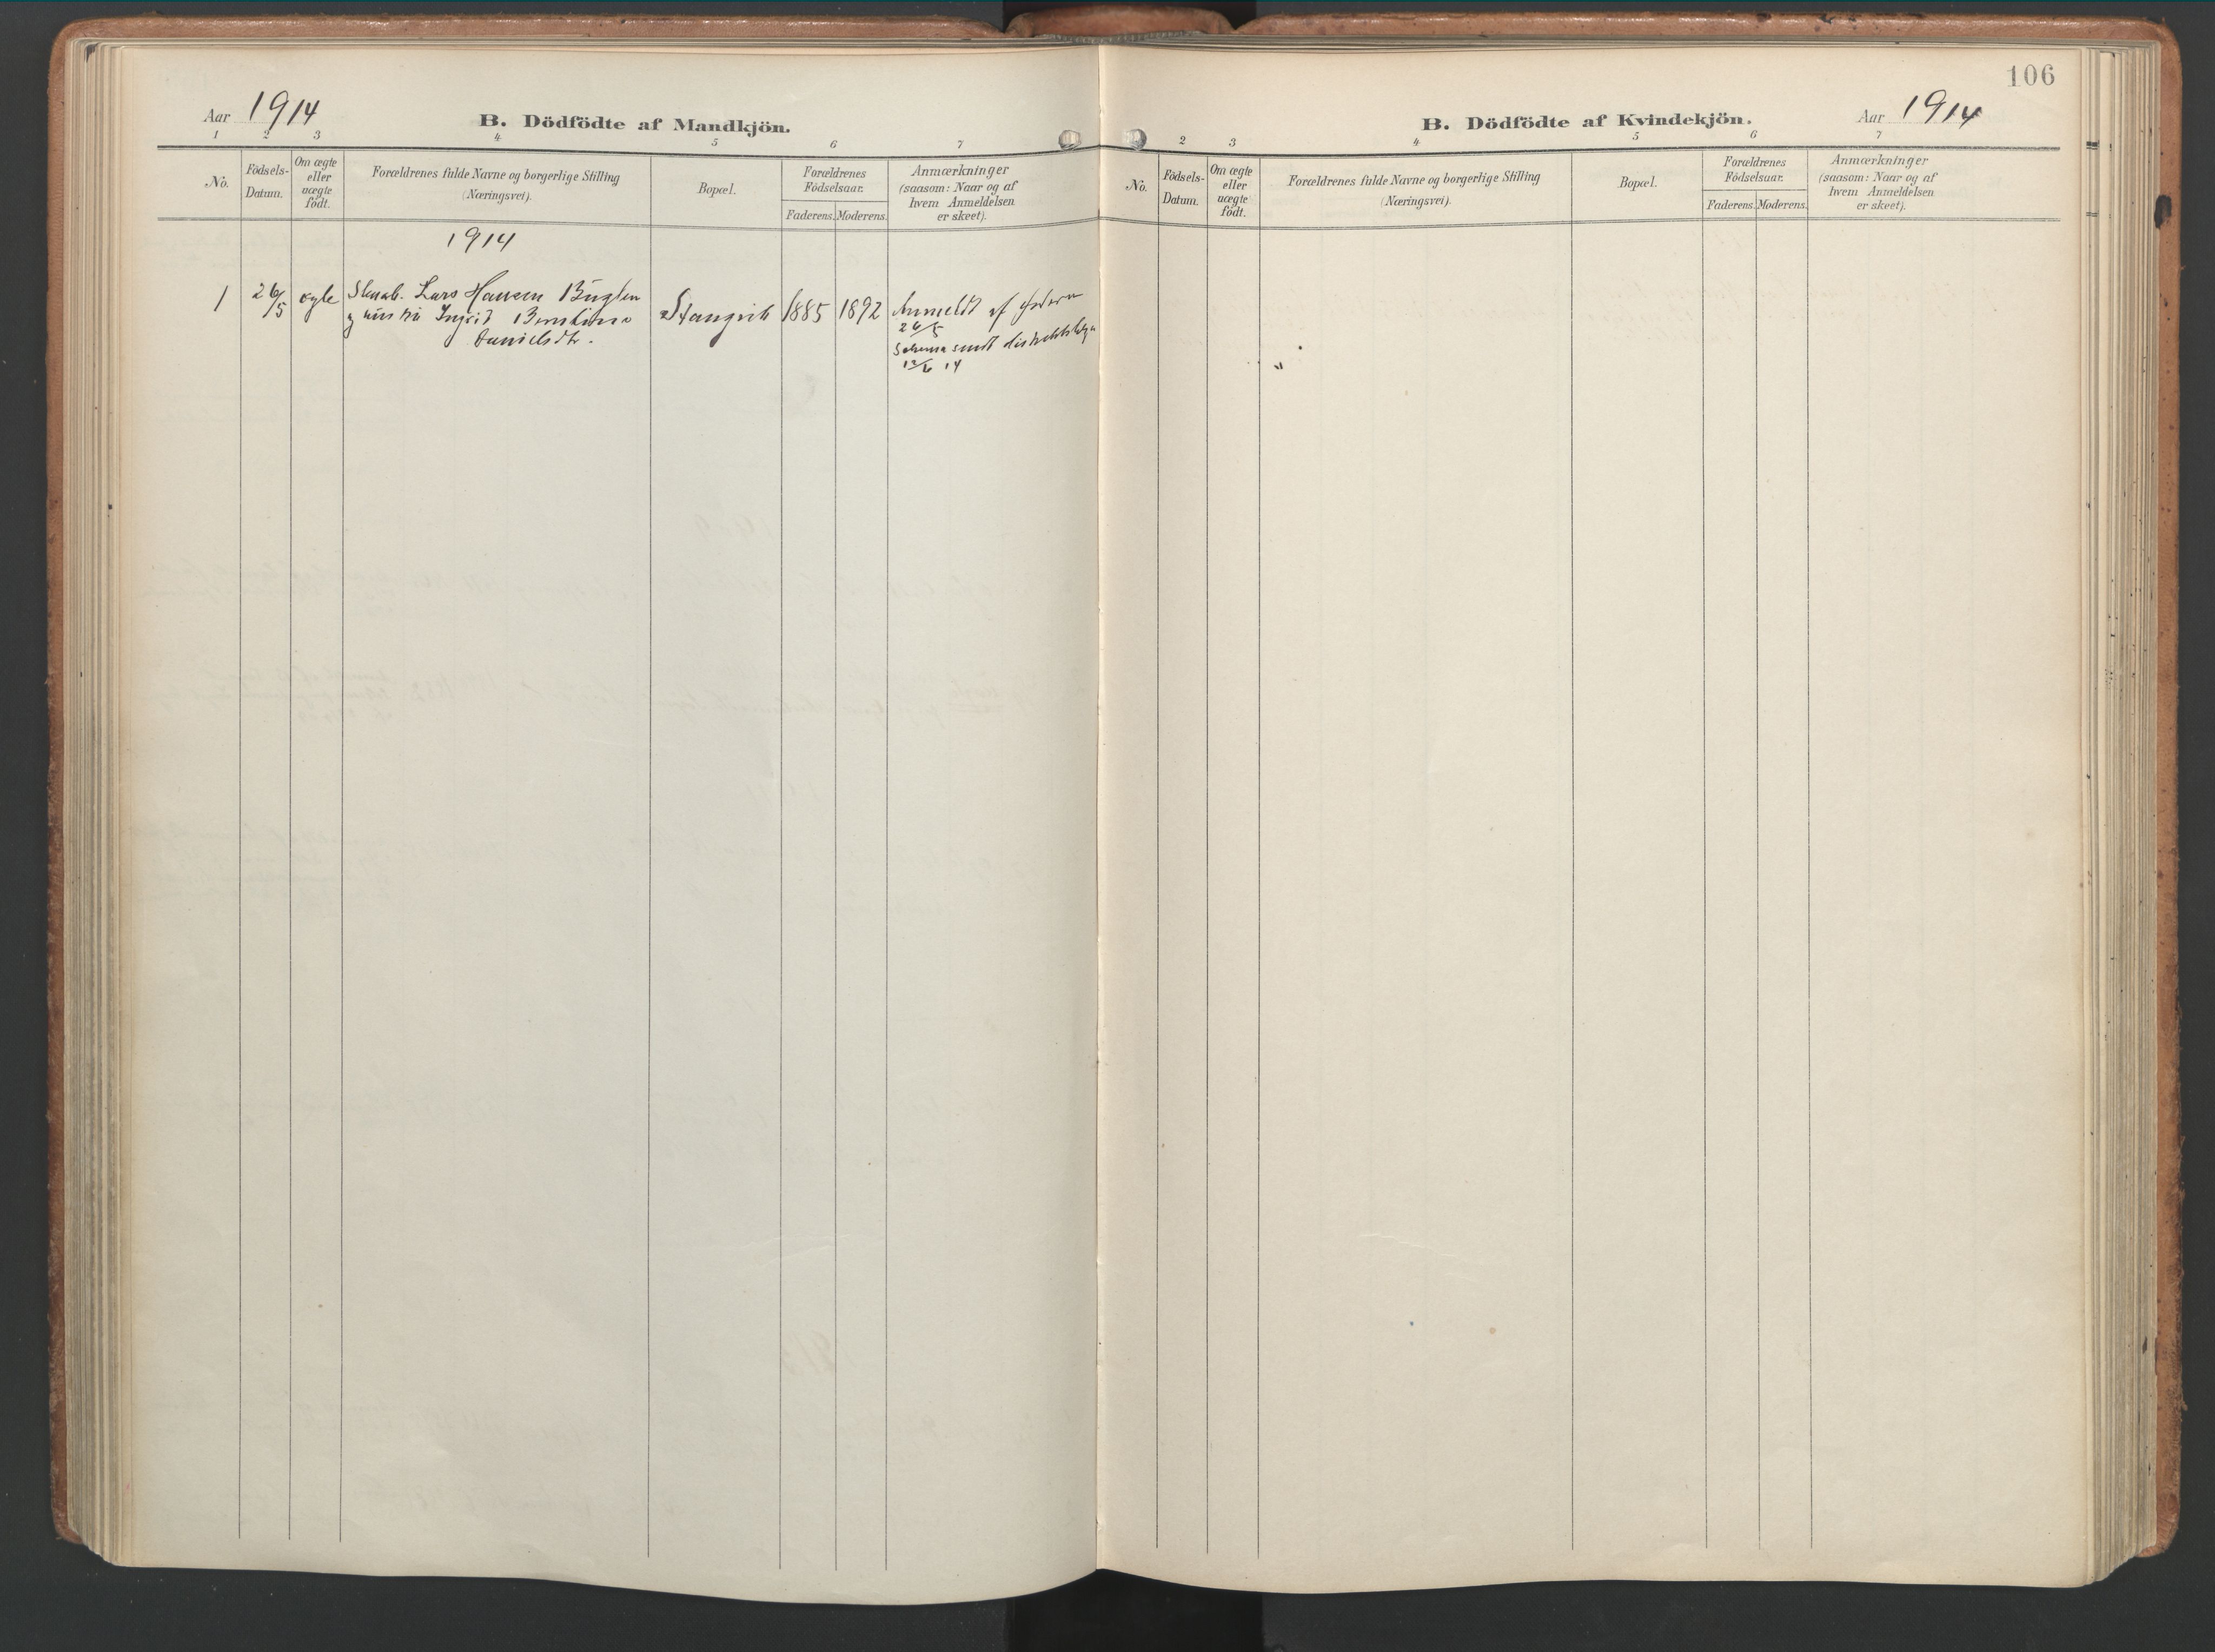 106
Aar 1914
B. Dödfödte af Mandkjön.
1 2 3 4 5 6 7
No.
Födsels-
Datum.
Om ægte
eller
uægte
födt.
Forældrenes fulde Navne og borgerlige Stilling
(Næringsvei).
Bopæl.
Forældrenes
Födselsaar.
Faderens. Moderens.
Anmærkninger
(saasom: Naar og af
hvem Anmeldelsen
er skeet).
1914
1 26/5 ægte Lars Hansen
Ingrid
Danielsdtr.
Stangvik 1885 1892
Anmeldt af faderen
26/5
Schema sendt distriktslægen
12/6 14
B. Dödfödte af Kvindekjön.
Aar 1914
2 3 4 5 6 7
No.
Födsels-
Datum.
Om ægte
eller
uægte
födt.
Forældrenes fulde Navne og borgerlige Stilling
(Næringsvei).
Bopæl.
Forældrenes
Födselsaar.
Faderens. Moderens.
Anmærkninger
(saasom: Naar og af
hvem Anmeldelsen
er skeet).